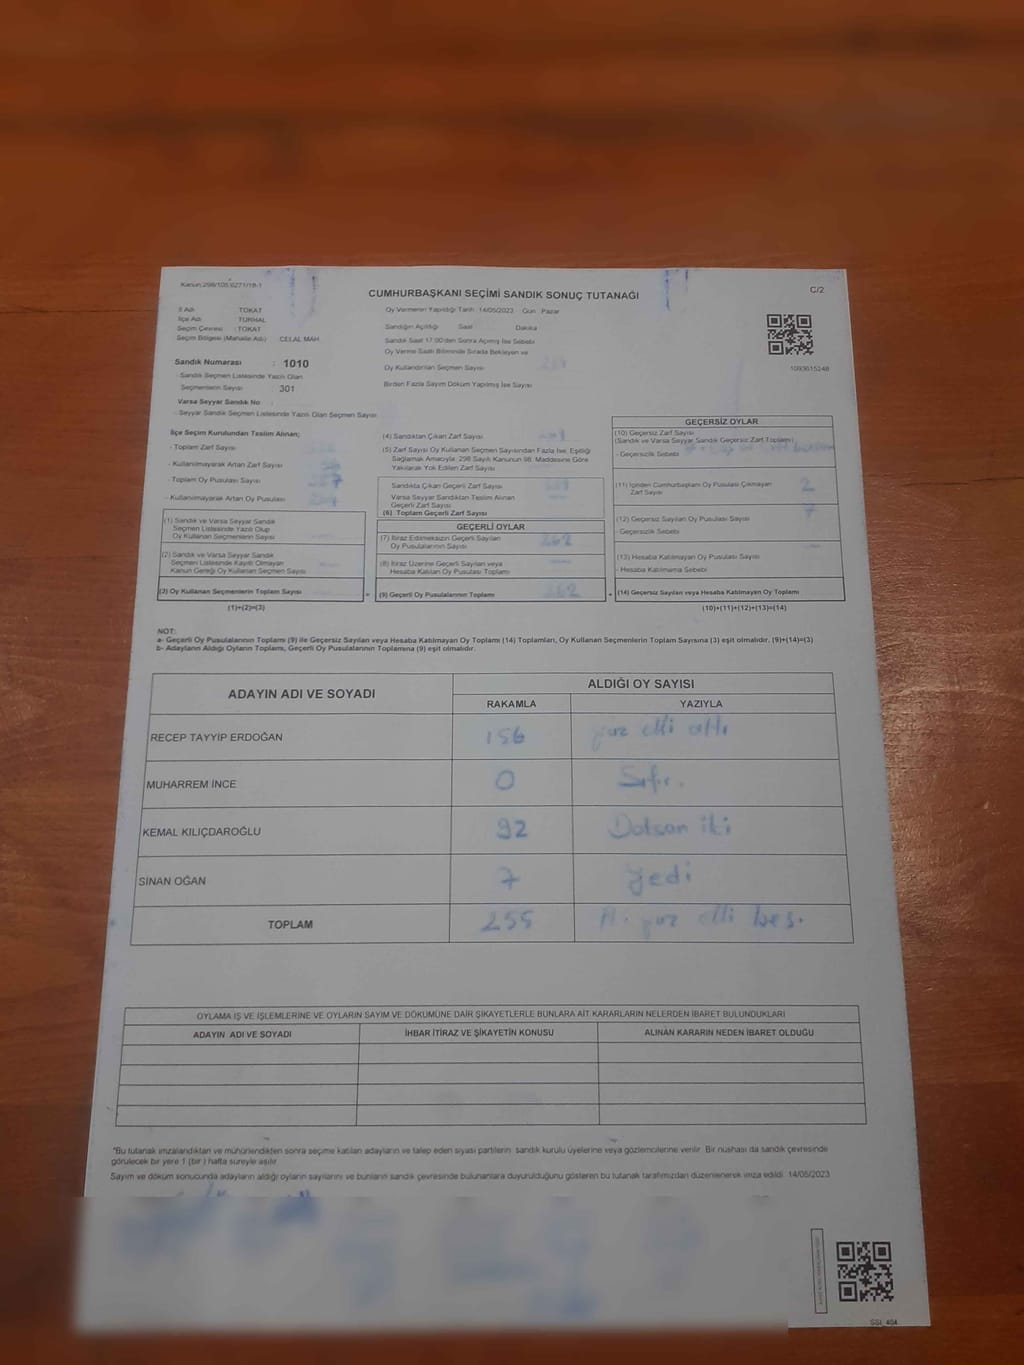 Kanun:298/105,6271/18-1
CUMHURBAŞKANI SEÇİMİ SANDIK SONUÇ TUTANAĞI
C/2
İl Adı : TOKAT
İlçe Adı : TURHAL
Seçim Çevresi : TOKAT
Seçim Bölgesi (Mahalle Adı) CELAL MAH
Oy Vermenin Yapıldığı Tarih 14/05/2023 Gün Pazar
Sandığın Açıldığı Saat Dakika
Sandık Saat 17.00'den Sonra Açılmış İse Sebebi
Oy Verme Saati Bitiminde Sırada Bekleyen ve
Oy Kullandırılan Seçmen Sayısı
Birden Fazla Sayım Döküm Yapılmış İse Sayısı
1093615248
Sandık Numarası : 1010
- Sandık Seçmen Listesinde Yazılı Olan
Seçmenlerin Sayısı : 301
Varsa Seyyar Sandık No
- Seyyar Sandık Seçmen Listesinde Yazılı Olan Seçmen Sayısı
İlçe Seçim Kurulundan Teslim Alınan;
- Toplam Zarf Sayısı
- Kullanılmayarak Artan Zarf Sayısı
- Toplam Oy Pusulası Sayısı
- Kullanılmayarak Artan Oy Pusulası
(1) Sandık ve Varsa Seyyar Sandık
Seçmen Listesinde Yazılı Olup
Oy Kullanan Seçmenlerin Sayısı
(2) Sandık ve Varsa Seyyar Sandık
Seçmen Listesinde Kayıtlı Olmayan
Kanun Gereği Oy Kullanan Seçmen Sayısı
(3) Oy Kullanan Seçmenlerin Toplam Sayısı
(1)+(2)=(3)
(4) Sandıktan Çıkan Zarf Sayısı
(5) Zarf Sayısı Oy Kullanan Seçmen Sayısından Fazla İse, Eşitliği
Sağlamak Amacıyla, 298 Sayılı Kanunun 98. Maddesine Göre
Yakılarak Yok Edilen Zarf Sayısı
Sandıkta Çıkan Geçerli Zarf Sayısı
Varsa Seyyar Sandıktan Teslim Alınan
Geçerli Zarf Sayısı
(6) Toplam Geçerli Zarf Sayısı
GEÇERLİ OYLAR
(7) İtiraz Edilmeksizin Geçerli Sayılan
Oy Pusulalarının Sayısı 262
(8) İtiraz Üzerine Geçerli Sayılan veya
Hesaba Katılan Oy Pusulası Toplamı
(9) Geçerli Oy Pusulalarının Toplamı 262
GEÇERSİZ OYLAR
(10) Geçersiz Zarf Sayısı
(Sandık ve Varsa Seyyar Sandık Geçersiz Zarf Toplamı)
- Geçersizlik Sebebi
(11) İçinden Cumhurbaşkanı Oy Pusulası Çıkmayan
Zarf Sayısı 2
(12) Geçersiz Sayılan Oy Pusulası Sayısı 7
- Geçersizlik Sebebi
(13) Hesaba Katılmayan Oy Pusulası Sayısı
- Hesaba Katılmama Sebebi
(14) Geçersiz Sayılan veya Hesaba Katılmayan Oy Toplamı
(10)+(11)+(12)+(13)=(14)
NOT:
a- Geçerli Oy Pusulalarının Toplamı (9) ile Geçersiz Sayılan veya Hesaba Katılmayan Oy Toplamı (14) Toplamları, Oy Kullanan Seçmenlerin Toplam Sayısına (3) eşit olmalıdır. (9)+(14)=(3)
b- Adayların Aldığı Oyların Toplamı, Geçerli Oy Pusulalarının Toplamına (9) eşit olmalıdır.
ADAYIN ADI VE SOYADI
ALDIĞI OY SAYISI
RAKAMLA YAZIYLA
RECEP TAYYİP ERDOĞAN 156 yüz elli altı
MUHARREM İNCE 0 Sıfır.
KEMAL KILIÇDAROĞLU 92 Doksan iki
SİNAN OĞAN 7 Yedi
TOPLAM 255 yüz elli beş.
OYLAMA İŞ VE İŞLEMLERİNE VE OYLARIN SAYIM VE DÖKÜMÜNE DAİR ŞİKAYETLERLE BUNLARA AİT KARARLARIN NELERDEN İBARET BULUNDUKLARI
ADAYIN ADI VE SOYADI İHBAR İTİRAZ VE ŞİKAYETİN KONUSU ALINAN KARARIN NEDEN İBARET OLDUĞU
*Bu tutanak imzalandıktan ve mühürlendikten sonra seçime katılan adayların ve talep eden siyasi partilerin sandık kurulu üyelerine veya gözlemcilerine verilir. Bir nüshası da sandık çevresinde
görülecek bir yere 1 (bir) hafta süreyle asılır.
Sayım ve döküm sonucunda adayların aldığı oyların sayılarını ve bunların sandık çevresinde bulunanlara duyurulduğunu gösteren bu tutanak tarafımızdan düzenlenerek imza edildi. 14/05/2023
SSI_404